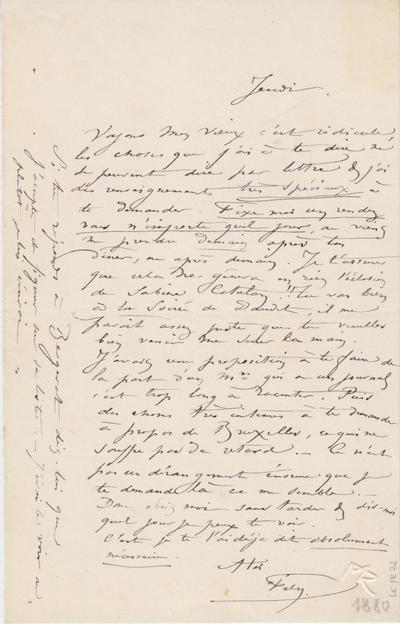 Jeudi.
Voyons mon vieux c'est ridicule
les choses que j'ai à te dire ne
se peuvent dire par lettre & j'ai
des renseignements très spéciaux à
te demander. Fixe moi un rendez
vous n'importe quel jour, ou viens
me prendre demain après ton
dîner, ou après demain. Je t'assure
que cela ne gênera en rien l'éclosion
de Sabina Catalan!! Tu vas bien
à la Soirée de Daudet, il me
paraît assez juste que tu veuilles
bien venir me serrer la main.
J'avais une proposition à te faire de
la part d'un Mr qui a un journal
c'est trop long à raconter. Puis
des choses très intimes à te demander
à propos de Bruxelles, ce qui ne
souffre pas de retard... Ce n'est
pas un dérangement énorme que je
te demande là ce me semble.
Donc moi sans tarder & dis-moi
quel jour je peux te voir.
C'est je te l'ai déjà dit absolument
nécessaire.
A toi
Fély
Si tu réponds à dis lui que
j'accepte de figurer sur sa liste. J'irai le voir a
1880
LE PR.72